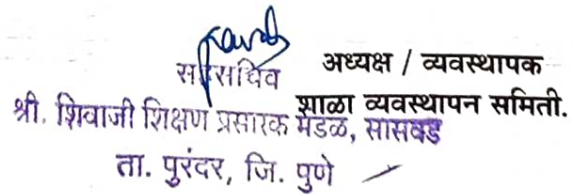 सहसचिव
अध्यक्ष / व्यवस्थापक
शाळा व्यवस्थापन समिती.
श्री. शिवाजी शिक्षण प्रसारक मंडळ, सासवड
ता. पुरंदर, जि. पुणे